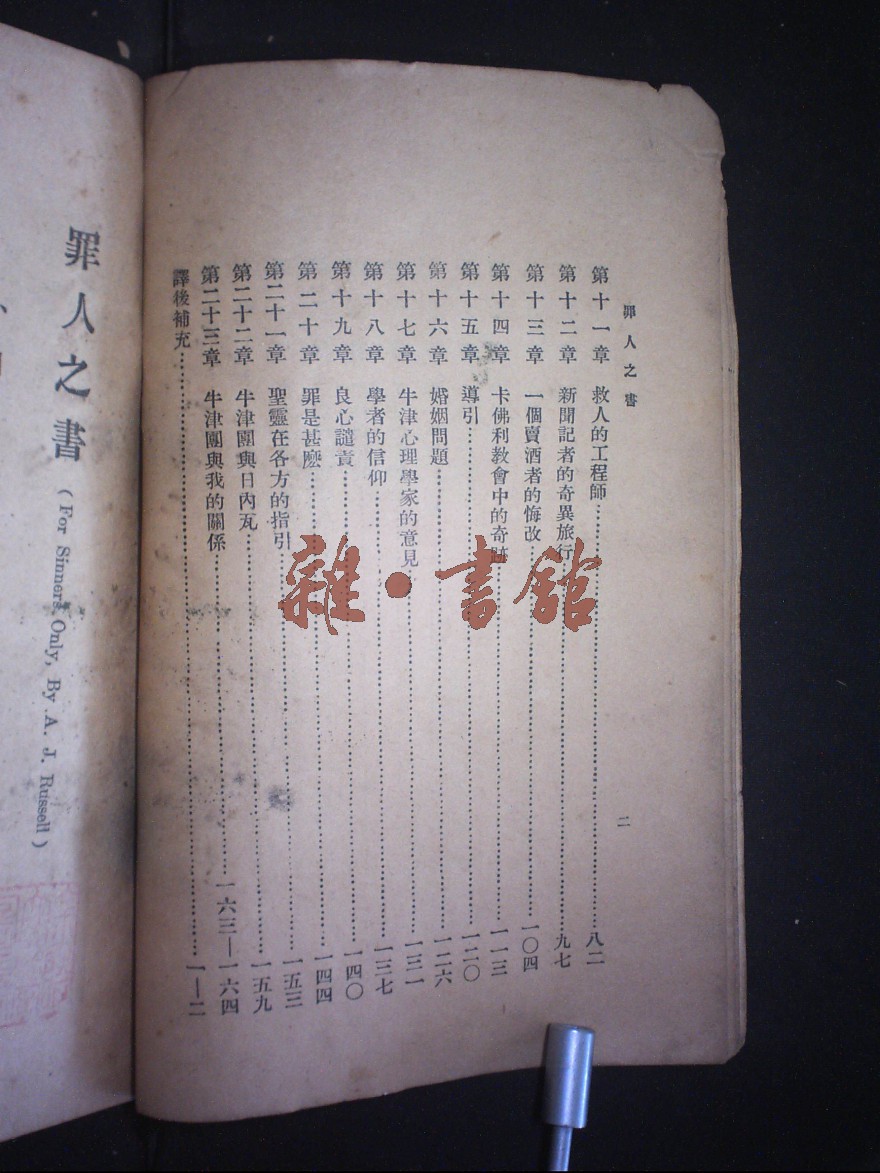 罪人之書
二
第十一章 救人的工程師……八二
第十二章 新聞記者的奇異旅行……九七
第十三章 一個賣酒者的悔改……一〇四
第十四章 卡佛利教會中的奇跡……一一三
第十五章 導引……一二〇
第十六章 婚姻問題……一二六
第十七章 牛津心理學家的意見……一三一
第十八章 學者的信仰……一三七
第十九章 良心譴責……一四〇
第二十章 罪是甚麽……一四四
第二十一章 聖靈在各方的指引……一五三
第二十二章 牛津團與日內瓦……一五九
第二十三章 牛津團與我的關係……一六三—一六四
譯後補充……一—二
罪人之書 (For Sinners Only, By A. J. Russell)
雜·書館